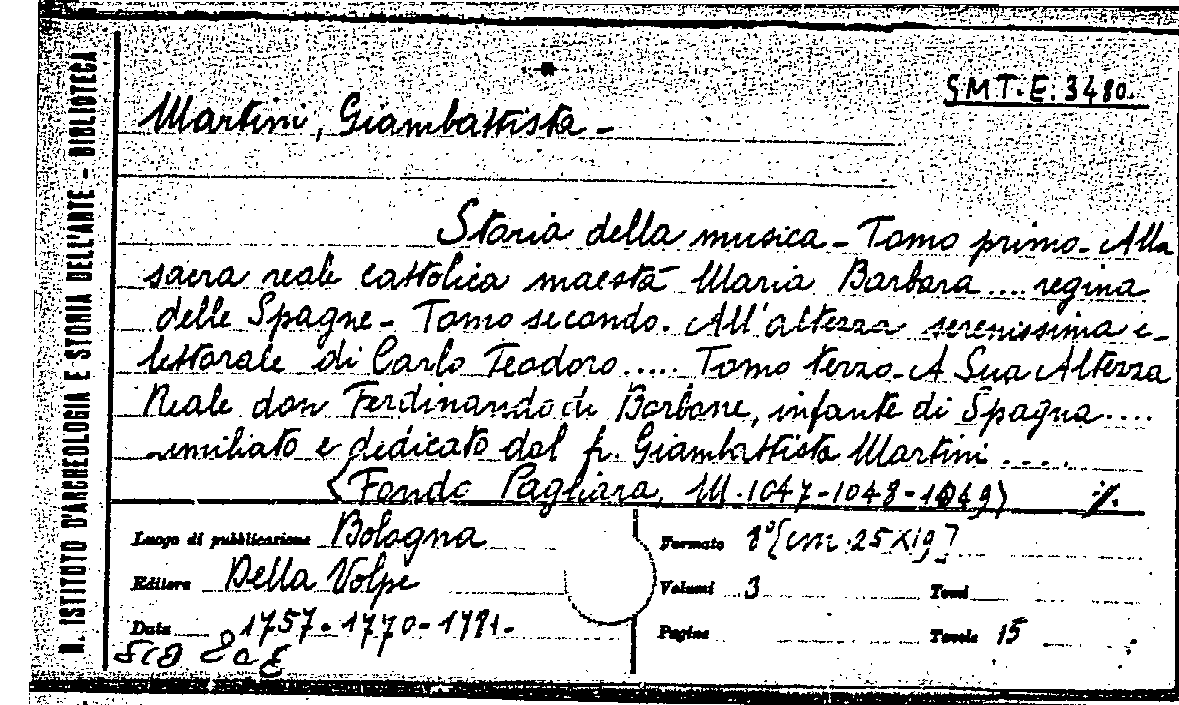 R. ISTITUTO D'ARCHEOLOGIA E STORIA DELL'ARTE - BIBLIOTECA
SMT.E.3480.
Martini, Giambattista -
Storia della musica - Tomo primo - Alla
sacra reale cattolica maestà Maria Barbara .... regina
delle Spagne - Tomo secondo. All'altezza serenissima e-
lettorale di Carlo Teodoro ..... Tomo terzo - A Sua Altezza
Reale don Ferdinando di Borbone, infante di Spagna ....
umiliato e dedicato dal fr. Giambattista Martini .....
(Fondo Pagliara, M.1047-1048-1049) ./.
Luogo di pubblicazione Bologna
Formato 8°[cm.25x19]
Editore Della Volpe
Volumi 3 Tomi
Data 1757-1770-1781-
Pagine Tavole 15